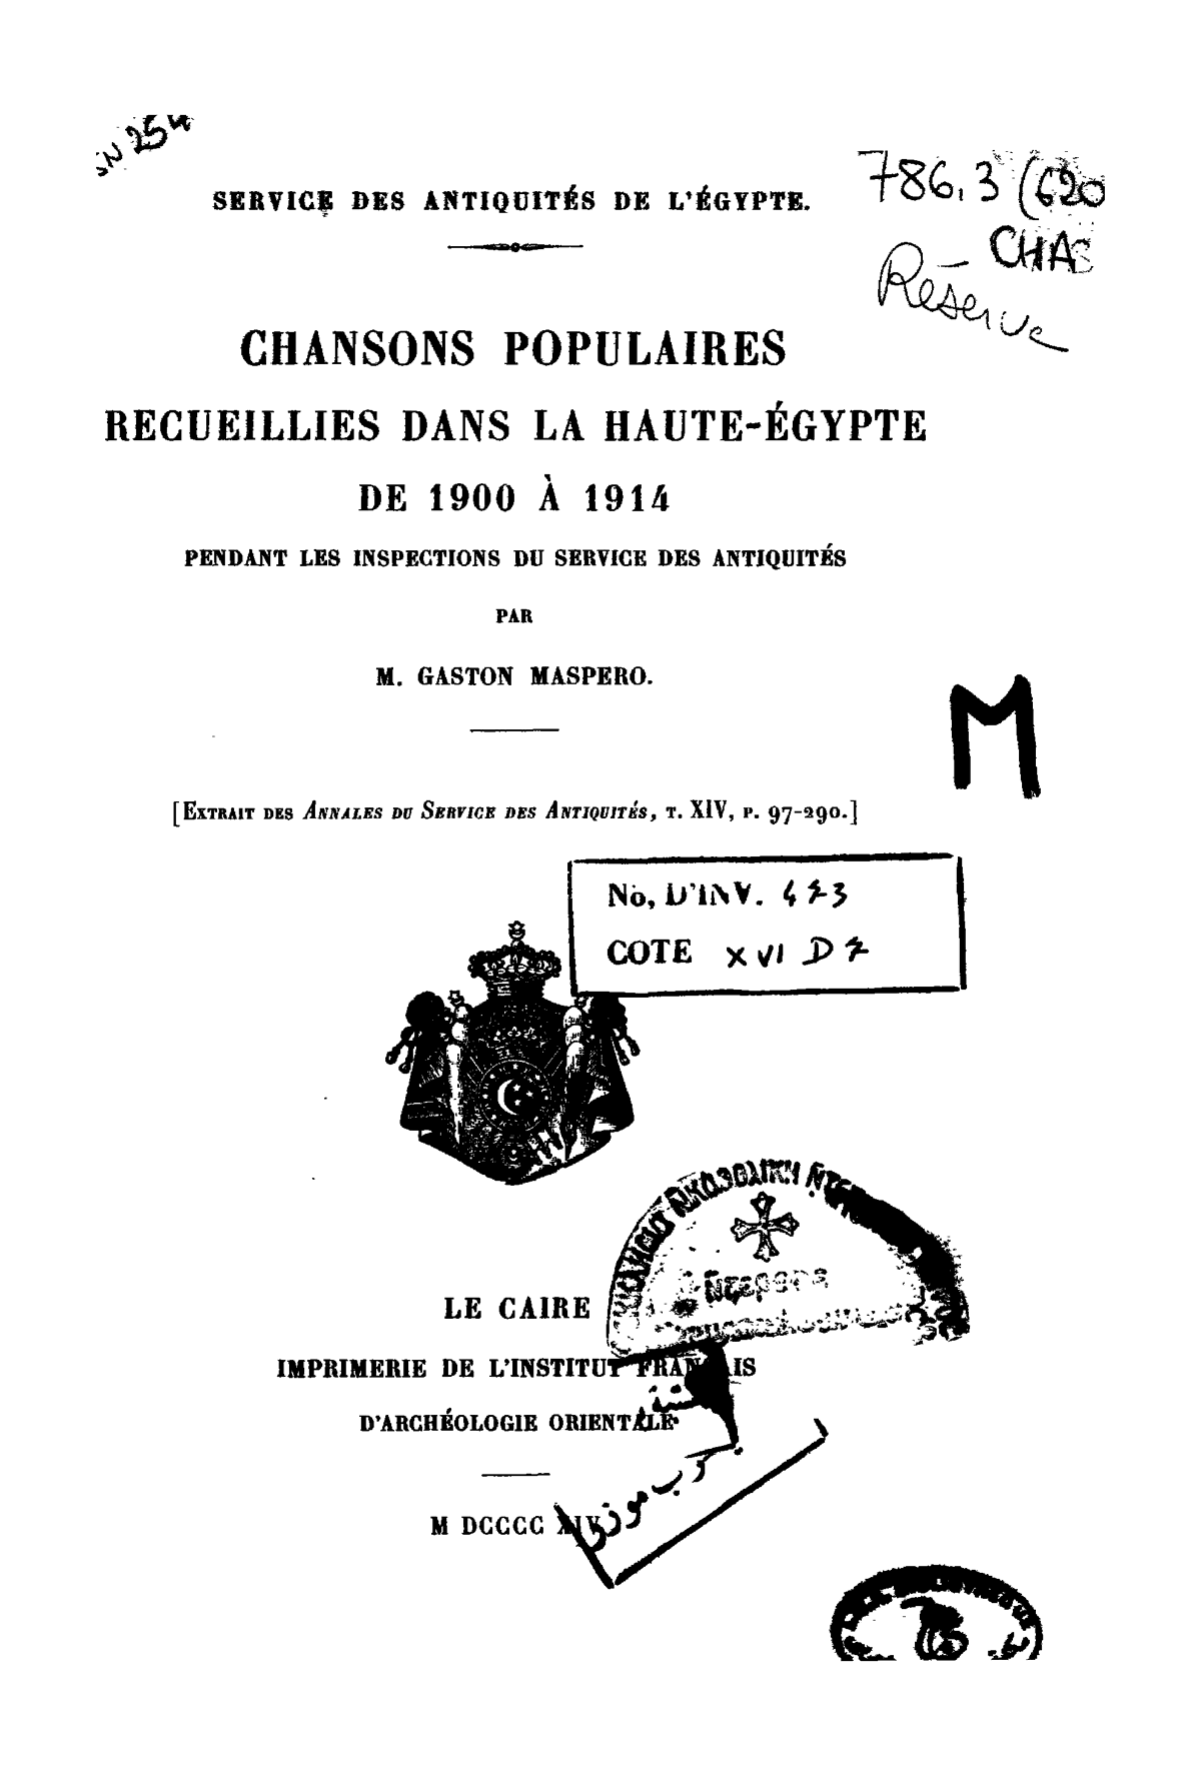 SERVICE DES ANTIQUITÉS DE L'ÉGYPTE.
786.3 (620
CHAS
Réserve
CHANSONS POPULAIRES
RECUEILLIES DANS LA HAUTE-ÉGYPTE
DE 1900 À 1914
PENDANT LES INSPECTIONS DU SERVICE DES ANTIQUITÉS
PAR
M. GASTON MASPERO.
M
[EXTRAIT DES ANNALES DU SERVICE DES ANTIQUITÉS, T. XIV, P. 97-290.]
No, D'INV. 473
COTE XVI D 7
LE CAIRE
IMPRIMERIE DE L'INSTITUT FRANÇAIS
D'ARCHÉOLOGIE ORIENTALE
M DCCCC XIV